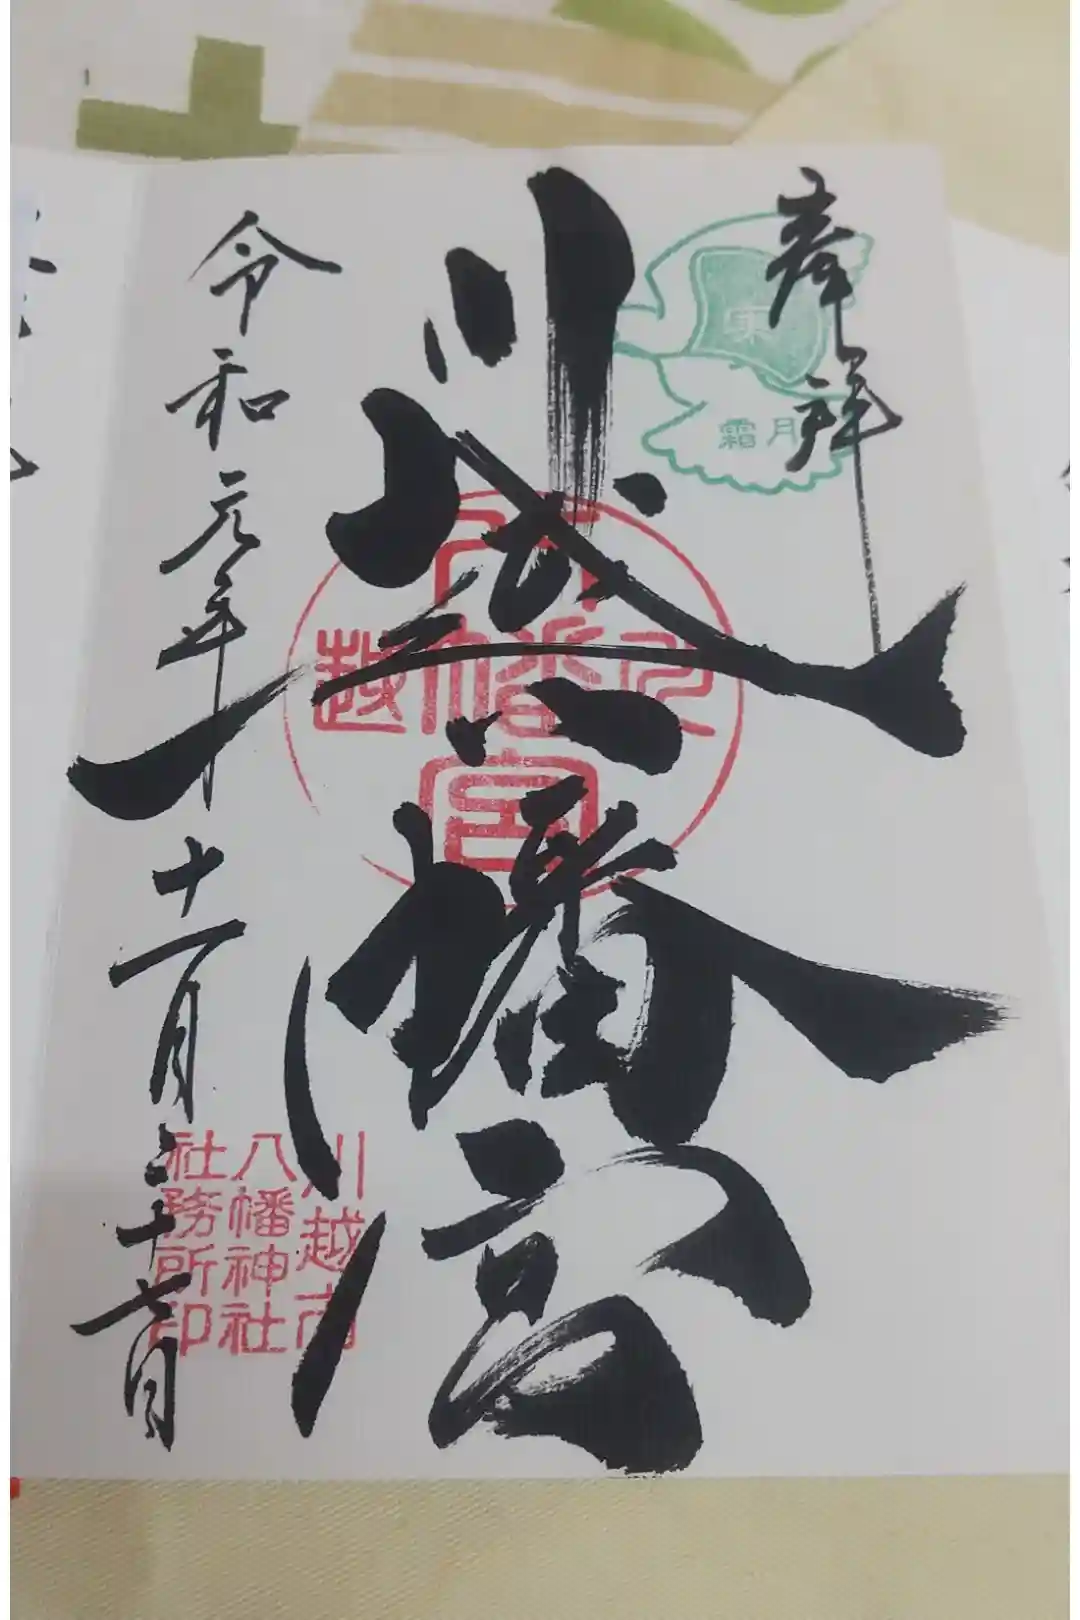 奉拝
霜月
川越八幡宮
川越八幡宮之印
令和元年十一月二十七日
川越市
八幡神社
社務所印